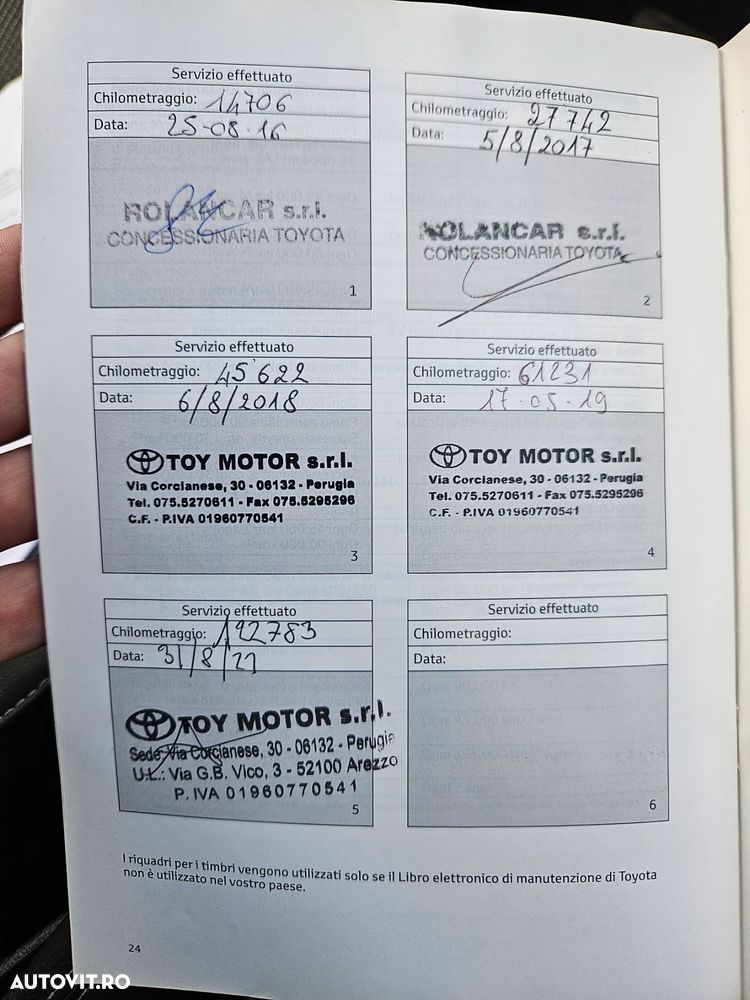 Servizio effettuato
Chilometraggio: 14706
Data: 25-08-16
ROLANCAR s.r.l.
CONCESSIONARIA TOYOTA
1
Servizio effettuato
Chilometraggio: 27742
Data: 5/8/2017
ROLANCAR s.r.l.
CONCESSIONARIA TOYOTA
2
Servizio effettuato
Chilometraggio: 45'622
Data: 6/8/2018
TOY MOTOR s.r.l.
Via Corcianese, 30 - 06132 - Perugia
Tel. 075.5270611 - Fax 075.5295296
C.F. - P.IVA 01960770541
3
Servizio effettuato
Chilometraggio: 61231
Data: 17-05-19
TOY MOTOR s.r.l.
Via Corcianese, 30 - 06132 - Perugia
Tel. 075.5270611 - Fax 075.5295296
C.F. - P.IVA 01960770541
4
Servizio effettuato
Chilometraggio: 122783
Data: 31/8/21
TOY MOTOR s.r.l.
Sede: Via Corcianese, 30 - 06132 - Perugia
U.L.: Via G.B. Vico, 3 - 52100 Arezzo
P. IVA 01960770541
5
Servizio effettuato
Chilometraggio:
Data:
6
I riquadri per i timbri vengono utilizzati solo se il Libro elettronico di manutenzione di Toyota
non è utilizzato nel vostro paese.
24
AUTOVIT.RO